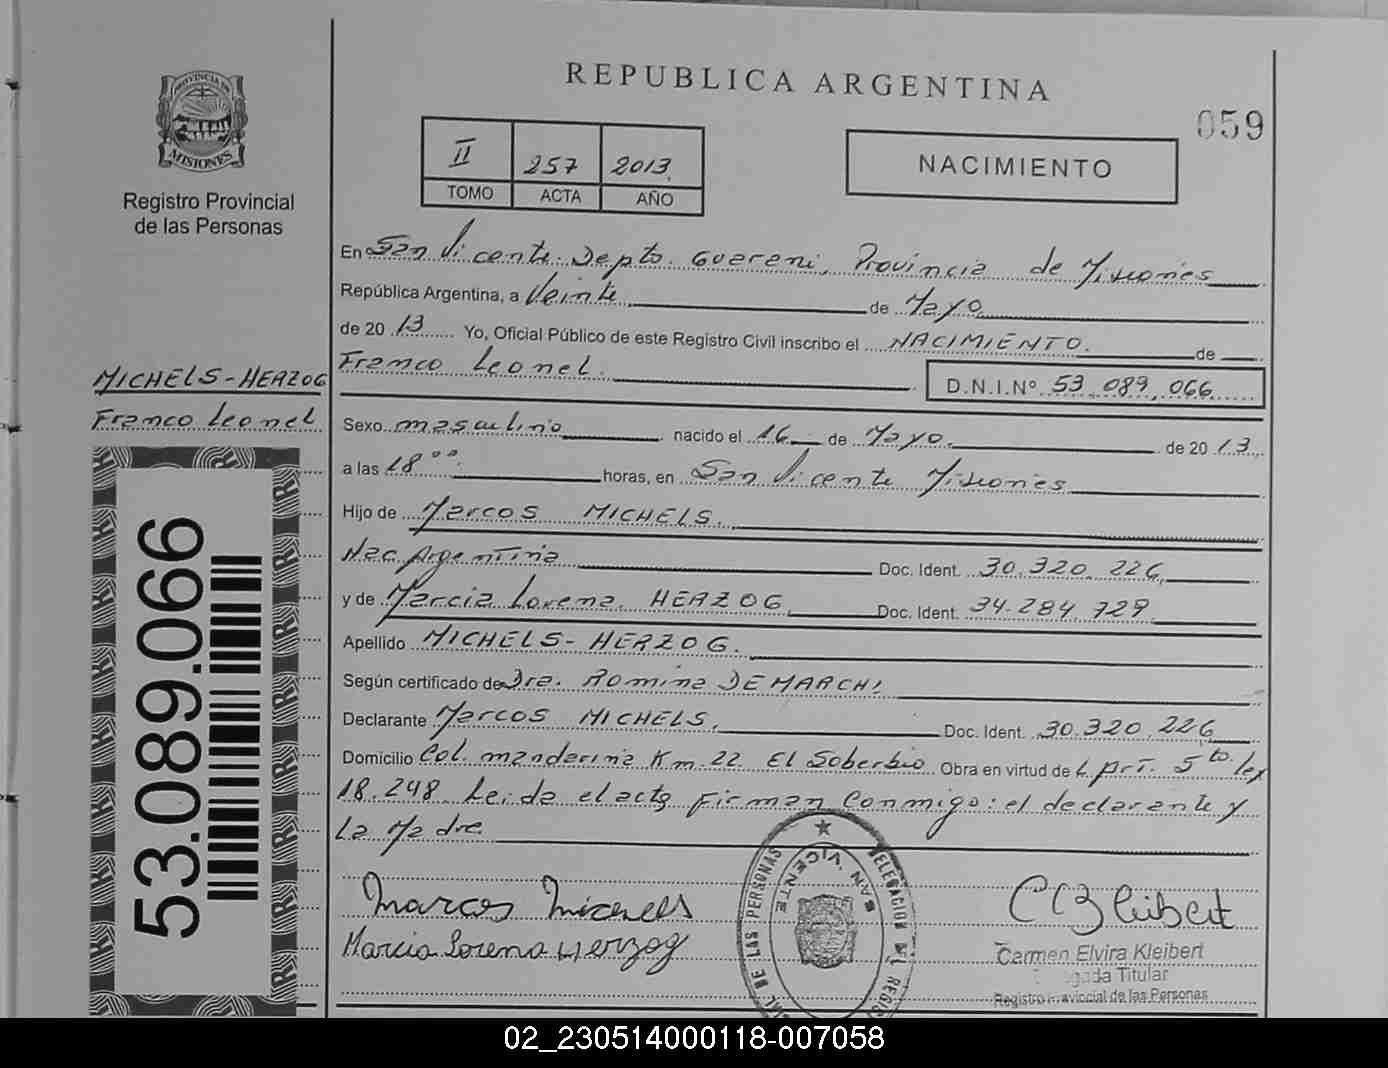 REPUBLICA ARGENTINA
059
II 257 2013
TOMO ACTA AÑO
NACIMIENTO
PROVINCIA DE
MISIONES
Registro Provincial
de las Personas
En San Vicente Depto. Guarani, Provincia de Misiones
República Argentina, a Veinte de Mayo
de 20 13 Yo, Oficial Público de este Registro Civil inscribo el NACIMIENTO. de
Franco Leonel. D.N.I.Nº 53.089.066
MICHELS-HERZOG
Franco Leonel
Sexo masculino nacido el 16 de Mayo. de 20 13.
a las 18ºº. horas, en San Vicente Misiones
Hijo de Marcos MICHELS.
Nac. Argentina Doc. Ident. 30.320.226
y de Marcia Lorena. HERZOG Doc. Ident. 34.284.729
Apellido MICHELS-HERZOG.
Según certificado de Dra. Romina DEMARCHI
Declarante Marcos MICHELS. Doc. Ident. 30.320.226
Domicilio Col. mandarina Km. 22 El Soberbio Obra en virtud de L. Art. 5to. ley
18.248. Leida el acta firman conmigo: el declarante y
La Madre
Marcos Michels
Marcia Lorena Herzog
DELEGACION DEL REGIST
DE LAS PERSONAS
SAN VICENTE
C B Kleibert
Carmen Elvira Kleibert
Titular
Registro Provincial de las Personas
53.089.066
02_230514000118-007058